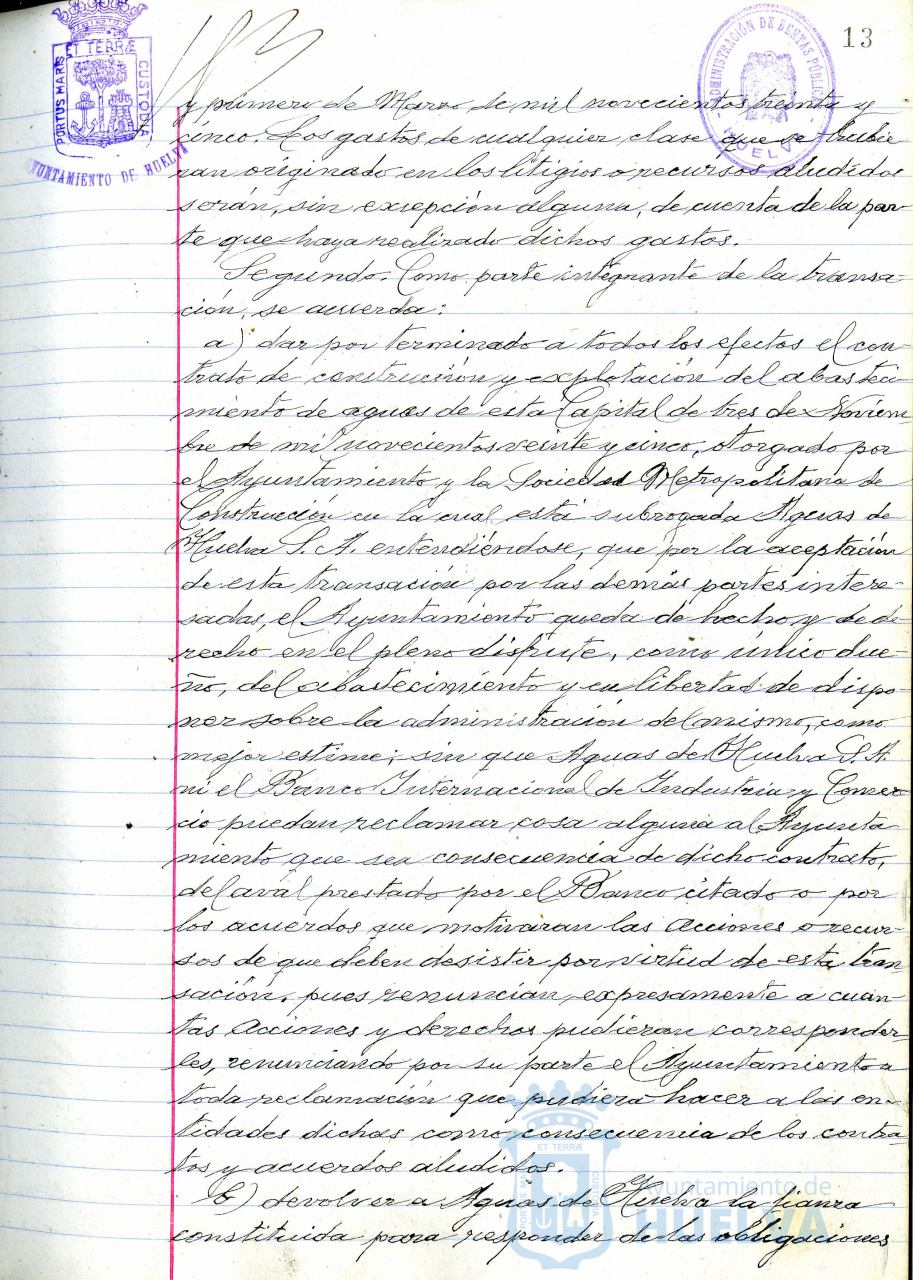 13
PORTUS MARIS ET TERRÆ CUSTODIA
AYUNTAMIENTO DE HUELVA
ADMINISTRACIÓN DE RENTAS PÚBLICAS
HUELVA
y primero de Marzo de mil novecientos treinta y
cinco. Los gastos de cualquier clase que se hubie-
ran originado en los litigios o recursos aludidos
serán, sin exsepción alguna, de cuenta de la par-
te que haya realizado dichos gastos.
Segundo. Como parte integrante de la transa-
ción, se acuerda:
a) dar por terminado a todos los efectos el con-
trato de construcción y explotación del abasteci-
miento de aguas de esta Capital de tres de Noviem-
bre de mil novecientos veinte y cinco, otorgado por
el Ayuntamiento y la Sociedad Metropolitana de
Construcción en la cual está subrogada Aguas de
Huelva S. A. entendiéndose, que por la aceptación
de esta transación por las demás partes intere-
sadas, el Ayuntamiento queda de hecho y de de-
recho en el pleno disfrute, como único due-
ño, del abastecimiento y en libertad de dispo-
ner sobre la administración del mismo, como
mejor estime; sin que Aguas de Huelva S. A.
ni el Banco Internacional de Industria y Comer-
cio puedan reclamar cosa alguna al Ayunta
miento que sea consecuencia de dicho contrato,
del aval prestado por el Banco citado o por
los acuerdos que motivaran las acciones o recur-
sos de que deben desistir por virtud de esta tran
sación, pues renuncian, expresamente a cuan-
tas acciones y derechos pudieran corresponder-
les, renunciando por su parte el Ayuntamiento a
toda reclamación que pudiera hacer a las en-
tidades dichas como consecuencia de los contra-
tos y acuerdos aludidos.
b) devolver a Aguas de Huelva la fianza
constituida para responder de las obligaciones
Ayuntamiento de
HUELVA